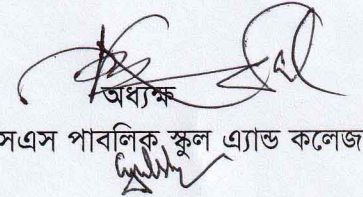 অধ্যক্ষ
সএস পাবলিক স্কুল এ্যান্ড কলেজ